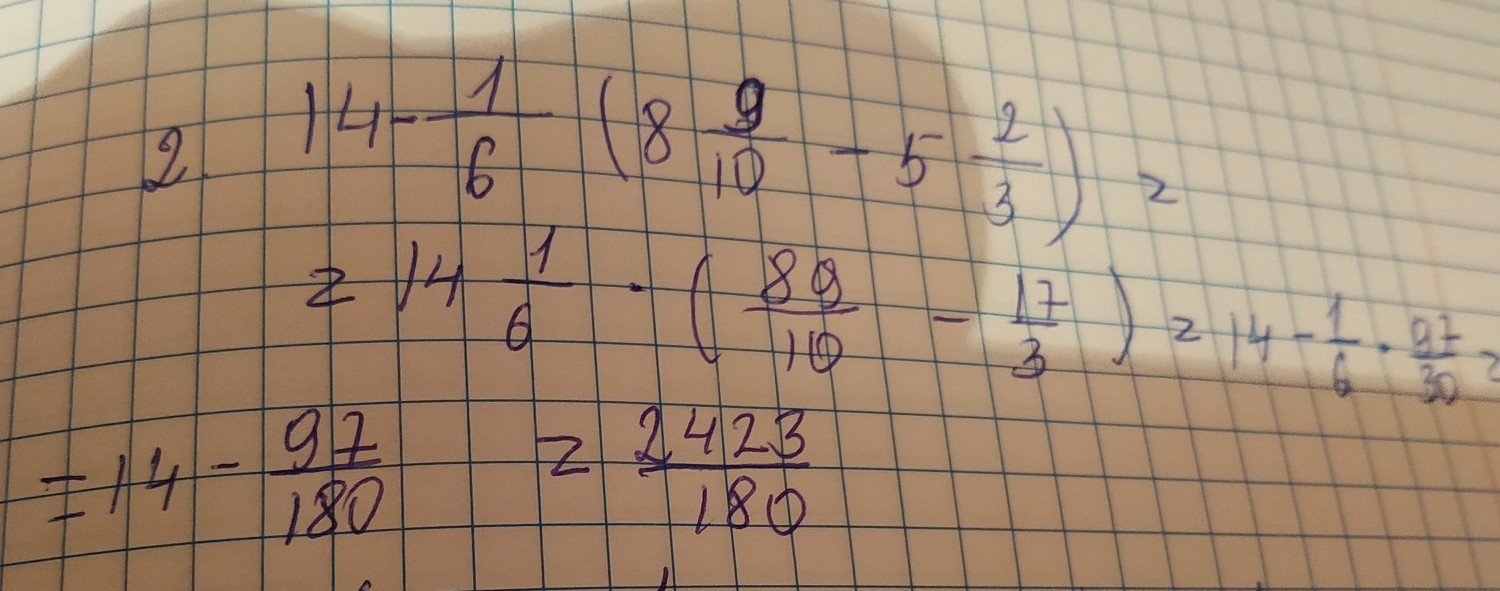 2. 14 - 1/6 (8 9/10 - 5 2/3) =
= 14 1/6 · (89/10 - 17/3) = 14 - 1/6 · 97/30 =
= 14 - 97/180 = 2423/180